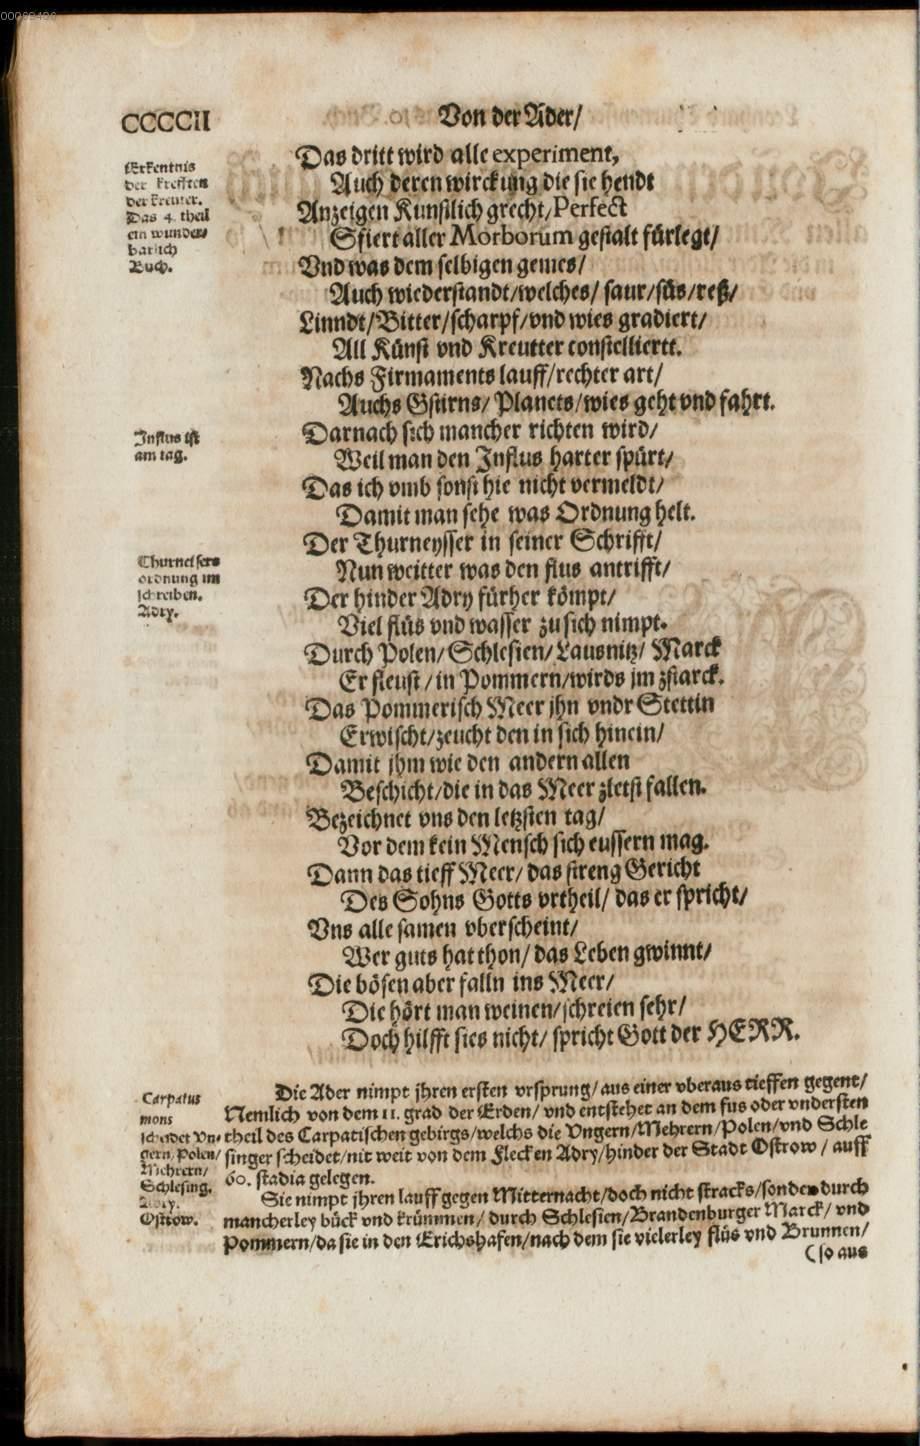 00009496
CCCCII
Von der Ader/
Erkentnis
der krefften
der kreuter.
Das 4. theil
ein wunder
barlich
Buch.
Das dritt wird alle experiment,
Auch deren wirckung die sie hendt
Anzeigen Kunstlich grecht/Perfect
Sfiert aller Morborum gestalt fürlegt/
Vnd was dem selbigen gemes/
Auch wiederstandt/welches/ saur/süs/reß/
Linndt/Bitter/scharpf/vnd wies gradiert/
All Künst vnd Kreutter constelliertt.
Nachs Firmaments lauff/rechter art/
Auchs Gstirns/ Planets/wies geht vnd fahrt.
Influs ist
am tag.
Darnach sich mancher richten wird/
Weil man den Influs harter spürt/
Das ich vmb sonst hie nicht vermeldt/
Damit man sehe was Ordnung helt.
Thurneisers
ordnung im
schreiben.
Adry.
Der Thurneysser in seiner Schrifft/
Nun weitter was den flus antrifft/
Der hinder Adry fürher kömpt/
Viel flüs vnd wasser zu sich nimpt.
Durch Polen/Schlesien/Lausnitz/ Marck
Er fleust/in Pommern/wirds jm zstarck.
Das Pommerisch Meer jhn vndr Stettin
Erwischt/zeucht den in sich hinein/
Damit jhm wie den andern allen
Beschicht/die in das Meer zletst fallen.
Bezeichnet vns den letzsten tag/
Vor dem kein Mensch sich eussern mag.
Dann das tieff Meer/ das streng Gericht
Des Sohns Gotts vrtheil/ das er spricht/
Vns alle samen vberscheint/
Wer guts hat thon/ das Leben gwinnt/
Die bösen aber falln ins Meer/
Die hört man weinen/schreien sehr/
Doch hilfft sies nicht/ spricht Gott der HERR.
Carpatus
mons
scheidet Vn-
gern/Polen/
Mehrern/
Schlesing.
Adry.
Ostrow.
Die Ader nimpt jhren ersten vrsprung/aus einer vberaus tieffen gegent/
Nemlich von dem 11. grad der Erden/ vnd entstehet an dem fus oder vndersten
theil des Carpatischen gebirgs/welchs die Vngern/Mehrern/Polen/vnd Schle
singer scheidet/nit weit von dem Flecken Adry/hinder der Stadt Ostrow / auff
60. stadia gelegen.
Sie nimpt jhren lauff gegen Mitternacht/doch nicht stracks/sonder durch
mancherley bück vnd krümmen/ durch Schlesien/Brandenburger Marck/ vnd
Pommern/da sie in den Erichshafen/nach dem sie vielerley flüs vnd Brunnen/
(so aus